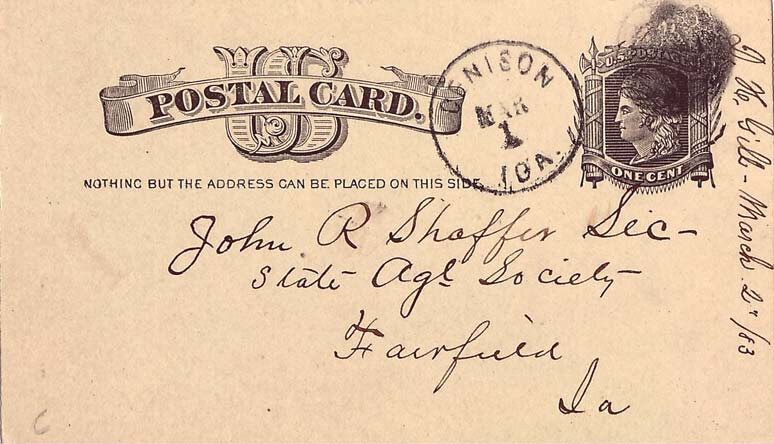 US
POSTAL CARD.
NOTHING BUT THE ADDRESS CAN BE PLACED ON THIS SIDE.
DENISON
MAR
1
IOA.
U.S. POSTAGE
ONE CENT
John R Shaffer Sec-
State Agl Society
Fairfield
Ia
March 2"/83